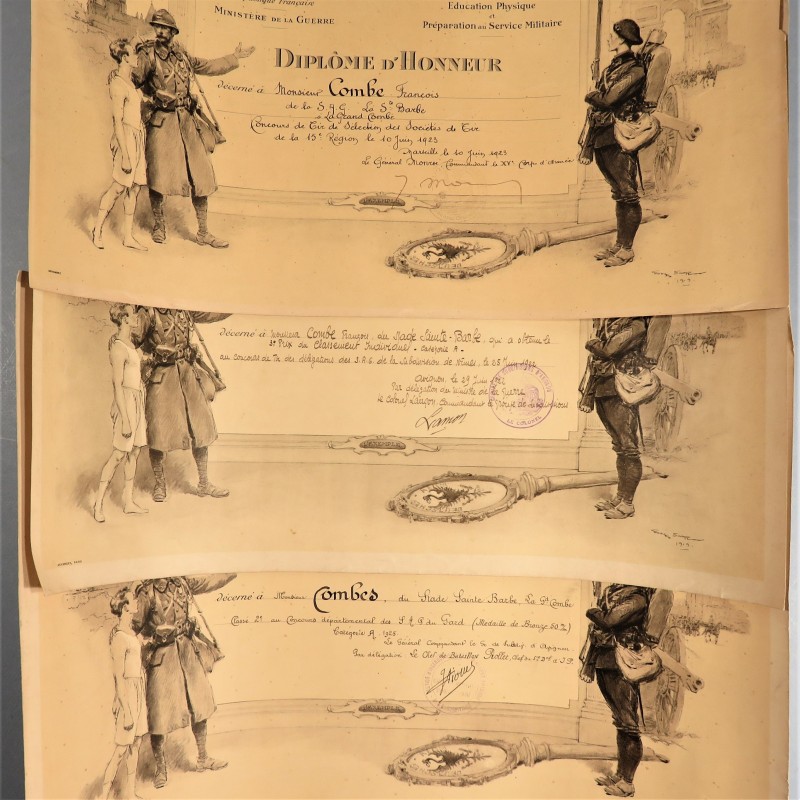 Française
MINISTÈRE DE LA GUERRE
Education Physique
et
Préparation au Service Militaire
DIPLÔME D'HONNEUR
décerné à Monsieur Combe François
de la S.A.G La Ste Barbe
à La Grand Combe
Concours de Tir de Sélection des Sociétés de Tir
de la 15e Région le 10 Juin 1923
Marseille le 10 Juin 1923
Le Général Commandant le XVe Corps d'Armée
1919
décerné à Monsieur Combe François, du Stade Sainte-Barbe, qui a obtenu le
3e Prix du Classement Individuel - Catégorie A -
au concours de Tir des délégations des S.A.G. de la Subdivision de Nîmes, le 25 Juin 1922
Avignon, le 29 Juin 1922
Par délégation du Ministre de la Guerre
le Colonel Commandant le Groupe de Subdivisions
LE COLONEL
1919
décerné à Monsieur Combes, du Stade Sainte Barbe, La Gd Combe
Classé 2e au Concours départemental des S.A.G du Gard (Médaille de Bronze 50 %)
Catégorie A, 1925
Le Général Commandant le de Subdif d'Avignon
Par délégation Le Chef de Bataillon